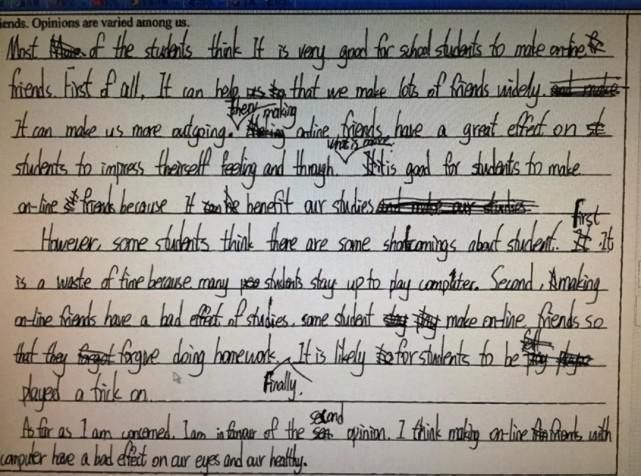 iends. Opinions are varied among us.
Most of the students think It is very good for school students to make on-line
friends. First of all, It can help that we make lots of friends widely.
It can make us more outgoing. Then, making on-line friends have a great effect on
students to impress theirself feeling and through. What is more, It is good for students to make
on-line friends because it can benefit our studies
However, some students think there are some shotcomings about student. first It
is a waste of time because many students stay up to play computer. Second, making
on-line friends have a bad effect of studies. some student make on-line friends so
that they forgve doing homework. Finally. It is likely for students to be
played a trick on.
As far as I am concerned, I am in favour of the second opinion. I think making on-line friends with
computer have a bad effect on our eyes and our healthy.